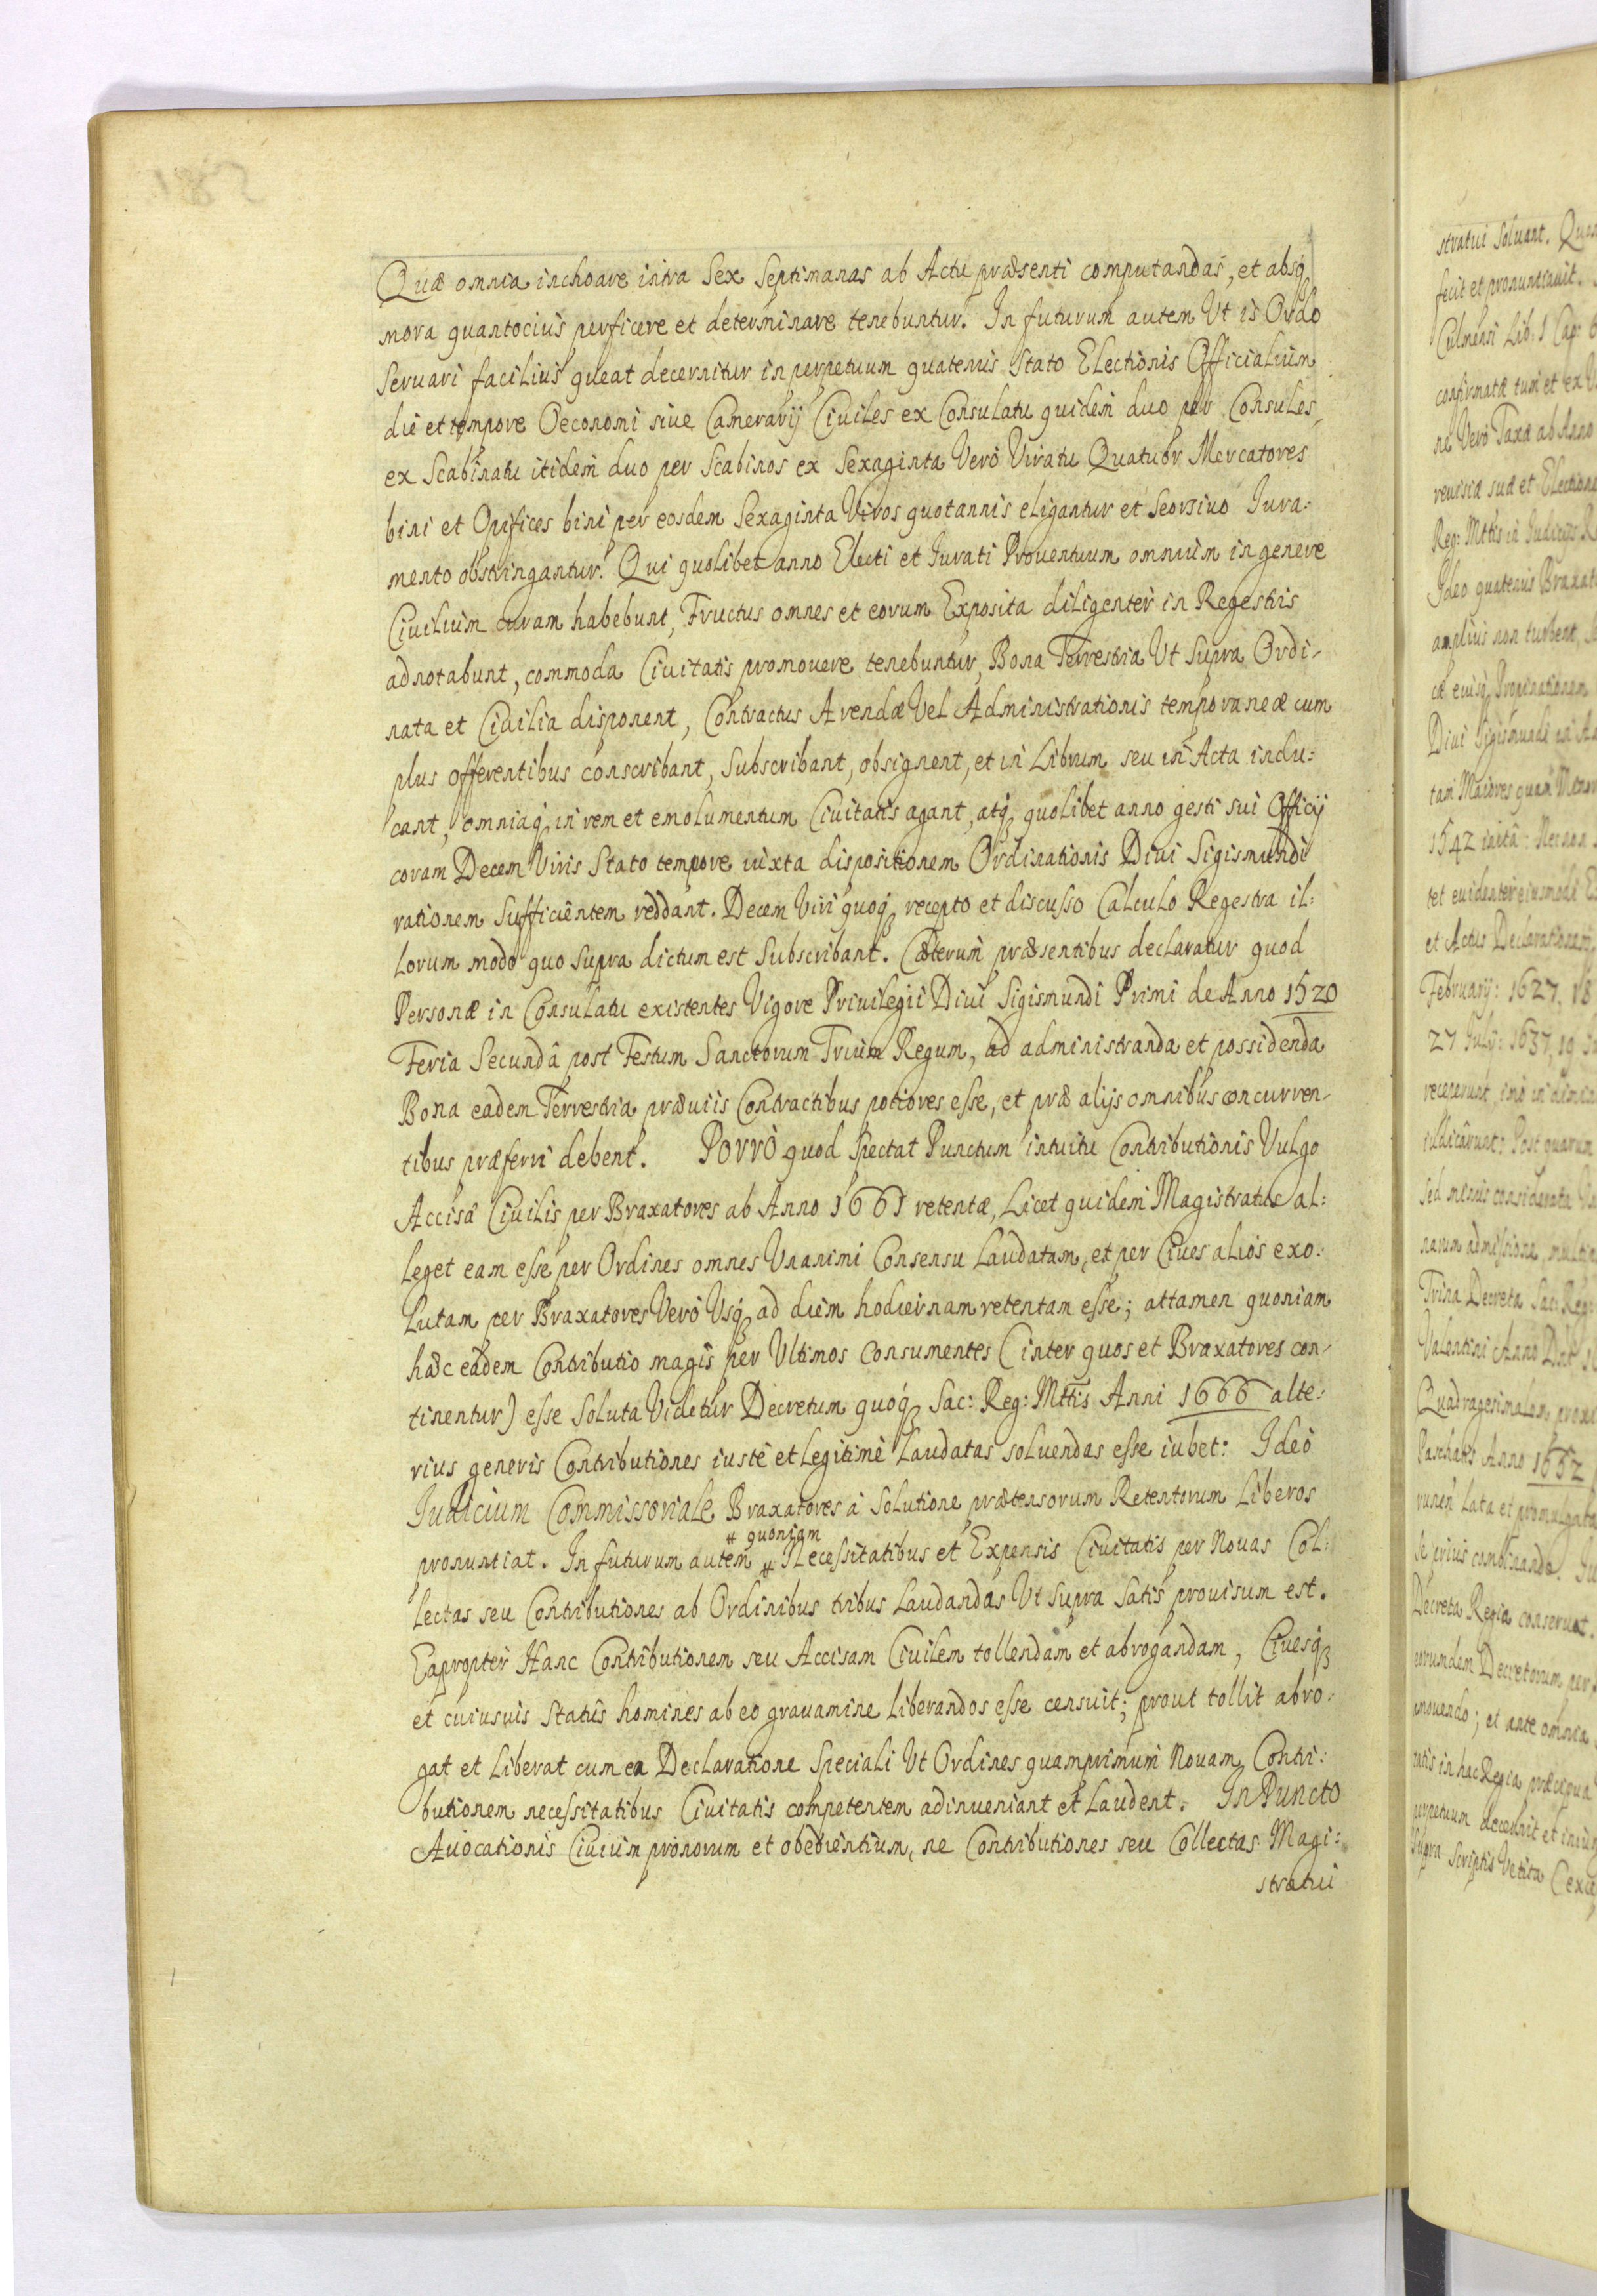 Quæ omnia inchoare intra Sex Septimanas ab Actu præsenti computandas, et absq́
mora quantocius perficere et determinare tenebuntur. In futurum autem Vt is Ordo
Seruari facilius queat decernitur in perpetuum quatenus Stato Electionis Officialium
die et tempore Oeconomi siue Camerarij Ciuiles ex Consulatu quidem duo per Consules,
ex Scabinatu itidem duo per Scabinos ex Sexaginta Verò Viratu Quatuor Mercatores
bini et Opifices bini per eosdem Sexaginta Viros quotannis eligantur et Seorsiuo Iura:
mento obstringantur. Qui quolibet anno Electi et Iurati Prouentuum omnium in genere
Ciuilium curam habebunt, Fructus omnes et eorum Exposita diligenter in Regestris
adnotabunt, commoda Ciuitatis promouere tenebuntur, Bona Terrestria Vt Supra Ordi-
nata et Ciuilia disponent, Contractus Arendæ Vel Administrationis temporaneæ cum
plus offerentibus conscribant, Subscribant, obsignent, et in Librum seu in Acta indu:
cant, omniaq́ in rem et emolumentum Ciuitatis agant, atq́ quolibet anno gesti sui Officij
coram Decem Viris Stato tempore iuxta dispositionem Ordinationis Diui Sigismundi
rationem Sufficientem reddant. Decem Viri quoq́ recepto et discusso Calculo Regestra il:
lorum modo quo Supra dictum est Subscribant. Cæterum præsentibus declaratur quod
Personæ in Consulatu existentes Vigore Priuilegii Diui Sigismundi Primi de Anno 1520
Feria Secundâ post Festum Sanctorum Trium Regum, ad administranda et possidenda
Bona eadem Terrestria præuiis Contractibus potiores esse, et præ alijs omnibus concurren-
tibus præferri debent. Porrò quod Spectat Punctum intuitu Contributionis Vulgo
Accisæ Ciuilis per Braxatores ab Anno 1661 retentæ, Licet quidem Magistratus al:
leget eam esse per Ordines omnes Vnanimi Consensu Laudatam, et per Ciues alios exo:
lutam per Braxatores Verò Usq́ ad diem hodiernam retentam esse; attamen quoniam
hæc eadem Contributio magis per Ultimos Consumentes (inter quos et Braxatores con-
tinentur) esse Soluta Videtur Decretum quoq́ Sac: Reg: Mttis Anni 1666 alte:
rius generis Contributiones iustè et Legitimè Laudatas soluendas esse iubet: Ideò
Iudicium Commissoriale Braxatores à Solutione prætensorum Retentorum Liberos
# quoniam
pronuntiat. In futurum autem # Necessitatibus et Expensis Ciuitatis per Nouas Col:
lectas seu Contributiones ab Ordinibus tribus Laudandas Vt Supra Satis prouisum est.
Eapropter Hanc Contributionem seu Accisam Ciuilem tollendam et abrogandam, Ciuesq́
et cuiusuis Statûs homines ab eo grauamine Liberandos esse censuit; prout tollit abro-
gat et Liberat cum ea Declaratione Speciali Vt Ordines quamprimum Nouam Contri:
butionem necessitatibus Ciuitatis competentem adinueniant et Laudent. In Puncto
Auocationis Ciuium pronorum et obedientium, ne Contributiones seu Collectas Magi:
stratui
stratui Soluant.
fecit et pronuntiauit.
Culmensi Lib: 1 Cap:
confirmatæ tum et ex
ne Verò Taxæ ab Anno
reuisiæ suæ et
Reg: Mttis in Iudicijs
Ideo quatenus
amplius non turbent,
Diui Sigismundi
tam Maiores quam
1542
et Actus Declarationem
February: 1627, 18
27 July: 1637, 19
iudicârunt: Post quarum
Sed minus considerata
narum admissione,
Trina Decreta Sac: Reg:
Valentini Anno
Quadragesimalem
Paschatis Anno 1652
runen Lata et promulgata
se prius combinando.
Decreta Regia conseruat.
eorundem Decretorum per
mouendo; et ante omnia
tatis in hac Regia præcipua
perpetuum decernit et
Supra Scriptis Vetita